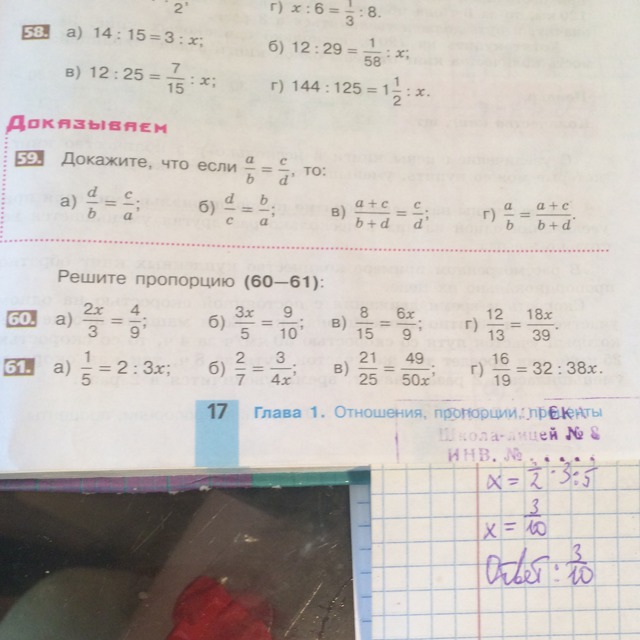 2;
г) x : 6 = 1/3 : 8.
58. а) 14 : 15 = 3 : x;
б) 12 : 29 = 1/58 : x;
в) 12 : 25 = 7/15 : x;
г) 144 : 125 = 1 1/2 : x.
Доказываем
59. Докажите, что если a/b = c/d, то:
а) d/b = c/a; б) d/c = b/a; в) (a + c)/(b + d) = c/d; г) a/b = (a + c)/(b + d).
Решите пропорцию (60—61):
60. а) 2x/3 = 4/9; б) 3x/5 = 9/10; в) 8/15 = 6x/9; г) 12/13 = 18x/39.
61. а) 1/5 = 2 : 3x; б) 2/7 = 3/4x; в) 21/25 = 49/50x; г) 16/19 = 32 : 38x.
17 Глава 1. Отношения, пропорции, проценты
ЕКА
Школа-лицей № 8
ИНВ. №
x = 1/2 · 3 : 5
x = 3/10
Ответ: 3/10